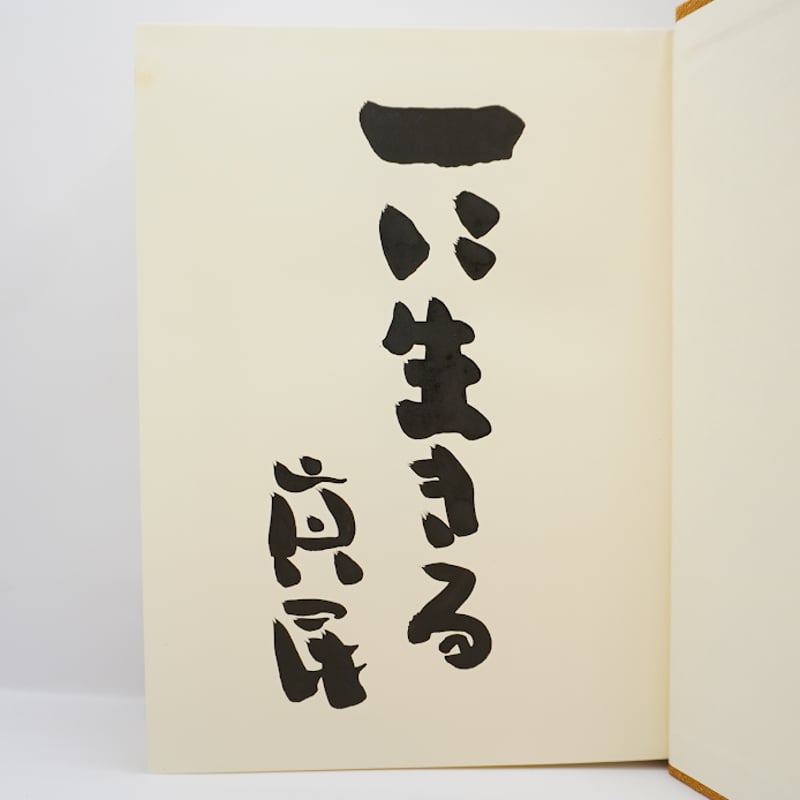 一に生きる
眞民